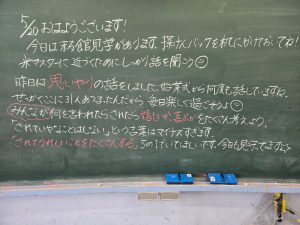 5/20 おはようございます!
今日は米子館見学があります。探けんバックを机にかけておいてね!
米マスターに近づくためにしっかり話を聞こう☺
昨日は思いやりの話をしました。始業式から何度も話していますね。
せっかくここに31人あつまったんだから毎日楽しく過ごそうよ☺
みんなが何を言われたらされたら嬉しいか喜ぶかをたくさん考えよう。
「されていやなことはしない」という言葉はマイナスすぎます。
「されてうれしいことをたくさんする」5の1でいてほしいです。今日も見ててますよ